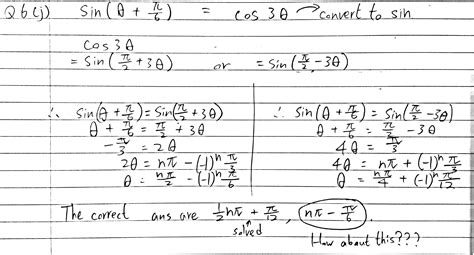 Q6(j) sin(θ + π/6) = cos 3θ → convert to sin
cos 3θ
= sin(π/2 + 3θ) or = sin(π/2 - 3θ)
∴ sin(θ + π/6) = sin(π/2 + 3θ)
θ + π/6 = π/2 + 3θ
-π/3 = 2θ
2θ = nπ - (-1)^n π/3
θ = nπ/2 - (-1)^n π/6
∴ sin(θ + π/6) = sin(π/2 - 3θ)
θ + π/6 = π/2 - 3θ
4θ = π/3
4θ = nπ + (-1)^n π/3
θ = nπ/4 + (-1)^n π/12
The correct ans are 1/2 nπ + π/12, nπ - π/6.
solved
How about this???